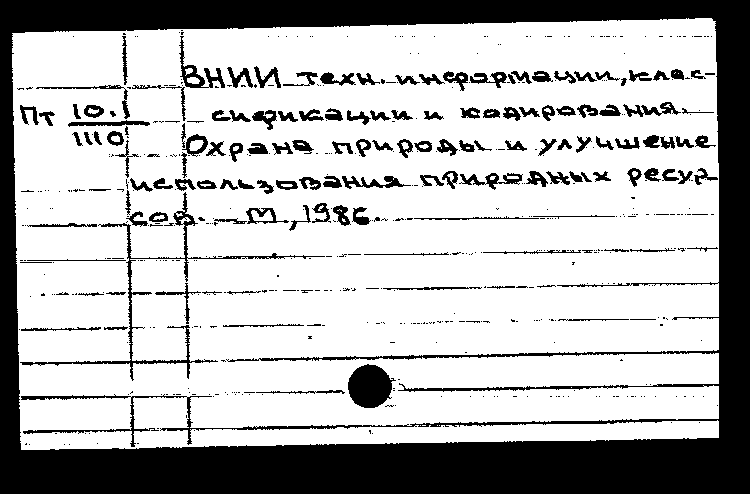 ВНИИ техн. информации, клас-
Пт 10.1 сификации и кодирования.
1110 Охрана природы и улучшение
использования природных ресур-
сов. — М., 1986.